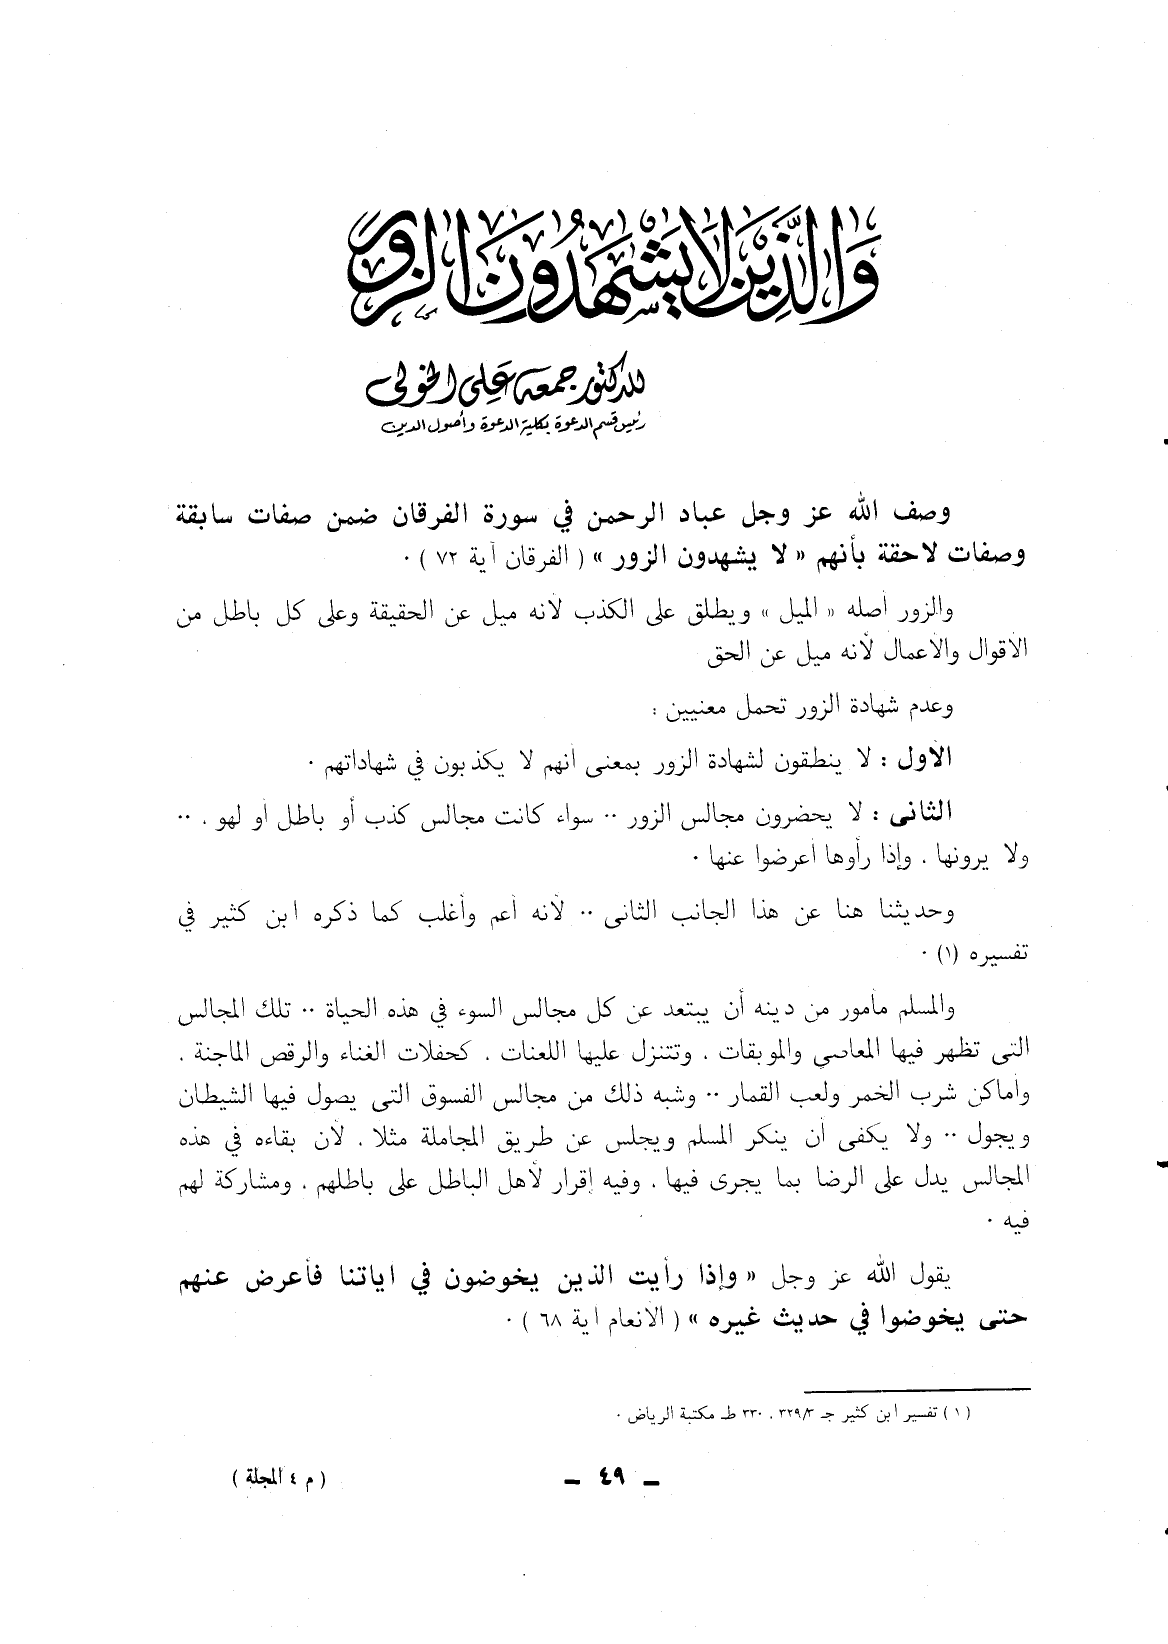 وَالَّذِينَ لَا يَشْهَدُونَ الزُّورَ
للدكتور جمعه علي الخولى
رئيس قسم الدعوة بكلية الدعوة وأصول الدين
وصف الله عز وجل عباد الرحمن في سورة الفرقان ضمن صفات سابقة
وصفات لاحقة بأنهم « لا يشهدون الزور » ( الفرقان آية ٧٢ ) ٠
والزور أصله « الميل » ويطلق على الكذب لانه ميل عن الحقيقة وعلى كل باطل من
الاقوال والاعمال لأنه ميل عن الحق
وعدم شهادة الزور تحمل معنيين :
الأول : لا ينطقون لشهادة الزور بمعنى أنهم لا يكذبون في شهاداتهم ٠
الثانى : لا يحضرون مجالس الزور ٠٠ سواء كانت مجالس كذب أو باطل أو لهو ، ٠٠
ولا يرونها ، وإذا رأوها أعرضوا عنها ٠
وحديثنا هنا عن هذا الجانب الثانى ٠٠ لأنه أعم وأغلب كما ذكره ابن كثير في
تفسيره (١) ٠
والمسلم مأمور من دينه أن يبتعد عن كل مجالس السوء في هذه الحياة ٠٠ تلك المجالس
التى تظهر فيها المعاصي والموبقات ، وتتنزل عليها اللعنات ، كحفلات الغناء والرقص الماجنة ،
وأماكن شرب الخمر ولعب القمار ٠٠ وشبه ذلك من مجالس الفسوق التى يصول فيها الشيطان
ويجول ٠٠ ولا يكفى أن ينكر المسلم ويجلس عن طريق المجاملة مثلا ، لأن بقاءه في هذه
المجالس يدل على الرضا بما يجرى فيها ، وفيه إقرار لأهل الباطل على باطلهم ، ومشاركة لهم
فيه ٠
يقول الله عز وجل « وإذا رأيت الذين يخوضون في اياتنا فأعرض عنهم
حتى يخوضوا في حديث غيره » ( الانعام اية ٦٨ ) ٠
( ١ ) تفسير ابن كثير جـ ٣٢٩/٣ ، ٣٣٠ طـ مكتبة الرياض ٠
ـ ٤٩ ـ
( م ٤ المجلة )